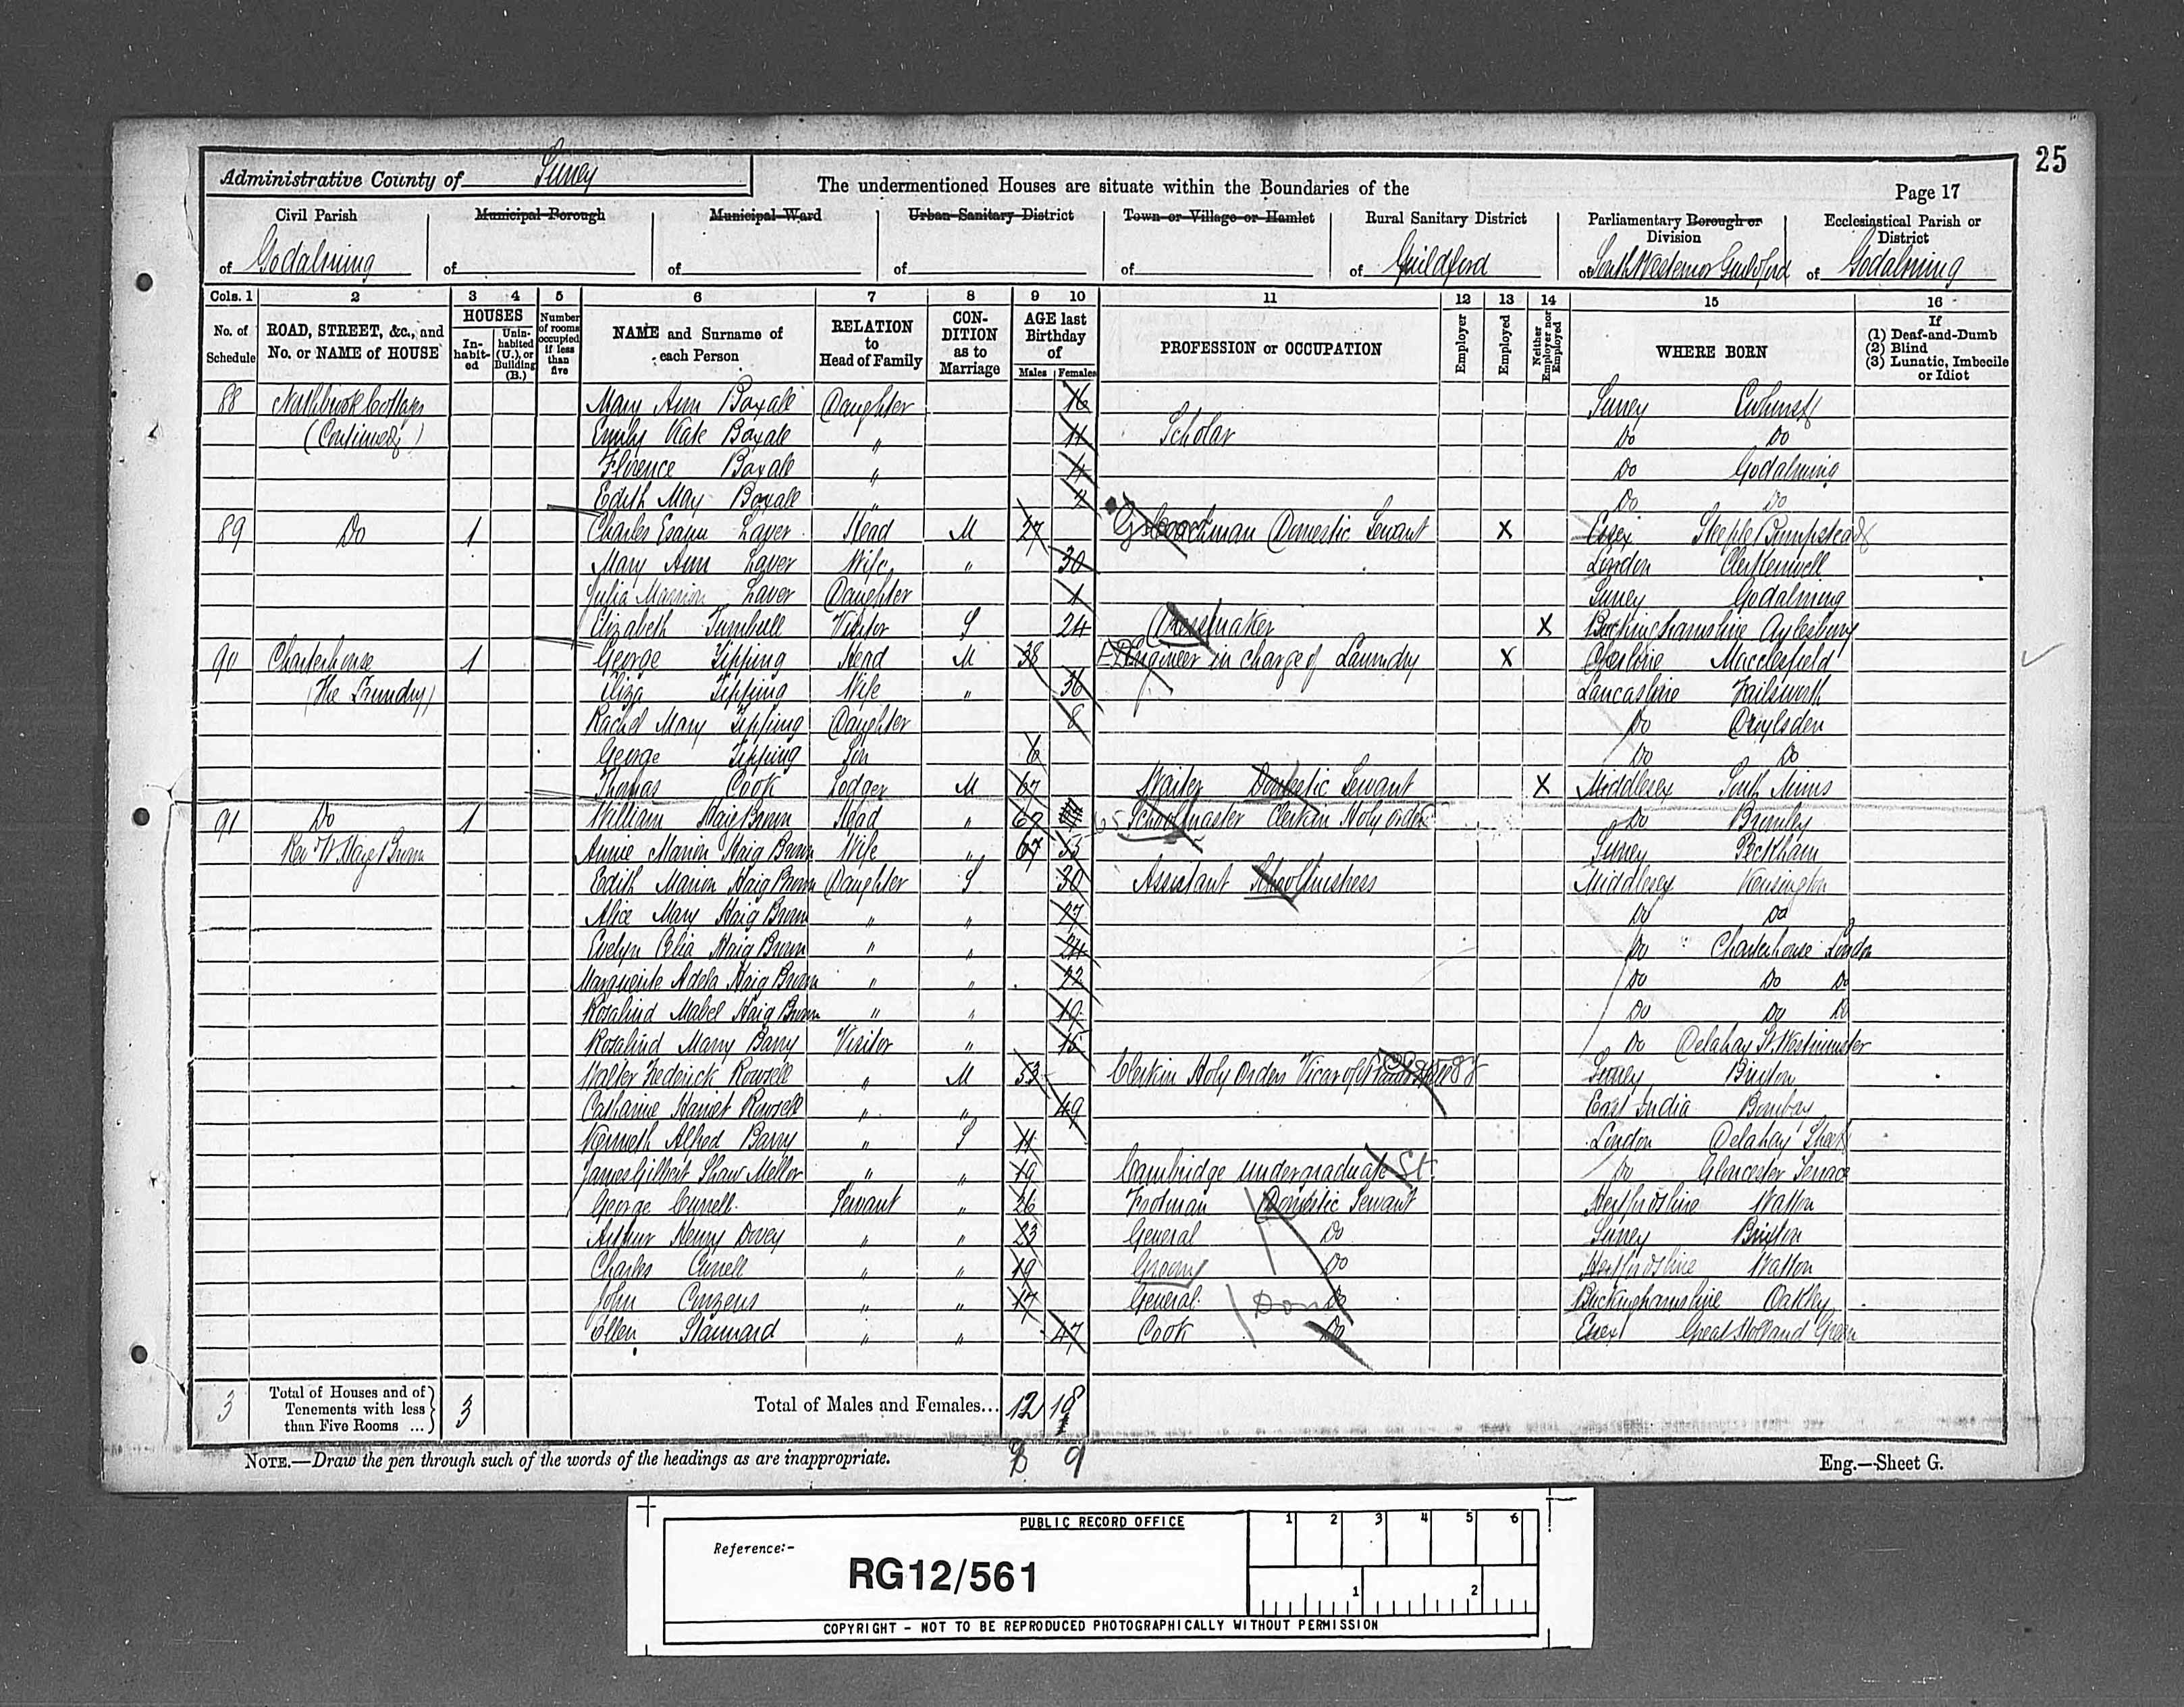 25
Administrative County of Surrey
The undermentioned Houses are situate within the Boundaries of the
Page 17
Civil Parish of Godalming
Municipal Borough of
Municipal Ward of
Urban Sanitary District of
Town or Village or Hamlet of
Rural Sanitary District of Guildford
Parliamentary Borough or Division of South Western or Guildford
Ecclesiastical Parish or District of Godalming
Cols. 1 2 3 4 5 6 7 8 9 10 11 12 13 14 15 16
No. of Schedule
ROAD, STREET, &c., and No. or NAME of HOUSE
HOUSES
Inhabited
Uninhabited (U.), or Building (B.)
Number of rooms occupied if less than five
NAME and Surname of each Person
RELATION to Head of Family
CONDITION as to Marriage
AGE last Birthday of
Males Females
PROFESSION or OCCUPATION
Employer
Employed
Neither Employer nor Employed
WHERE BORN
If (1) Deaf-and-Dumb (2) Blind (3) Lunatic, Imbecile or Idiot
88 Northbrook Cottages Mary Ann Boxall Daughter 16 Surrey Ewhurst
(Continued) Emily Kate Boxall " 11 Scholar Do Do
Florence Boxall " 4 Do Godalming
Edith May Boxall " 2 Do Do
89 Do 1 Charles Laver Head M 27 Coachman Domestic Servant X Essex Steeple Bumpstead
Mary Ann Laver Wife " 30 London Clerkenwell
Julia Marion Laver Daughter 1 Surrey Godalming
Elizabeth Turnbull Visitor S 24 Dressmaker X Buckinghamshire Aylesbury
90 Charterhouse 1 George Tipping Head M 38 Engineer in charge of Laundry X Cheshire Macclesfield
(The Laundry) Eliza Tipping Wife " 36 Lancashire Failsworth
Rachel Mary Tipping Daughter 8 Do Droylsden
George Tipping Son 6 Do Do
Thomas Cook Lodger M 67 Waiter Domestic Servant X Middlesex South Mims
91 Do 1 William Haig Brown Head " 67 Schoolmaster Clerk in Holy orders Do Bromley
Rev W. Haig Brown Annie Marion Haig Brown Wife " 53 Surrey Peckham
Edith Marion Haig Brown Daughter S 30 Assistant Schoolmistress Middlesex Kensington
Alice Mary Haig Brown " " 27 Do Do
Evelyn Celia Haig Brown " " 24 Do Charterhouse London
Marguerite Adela Haig Brown " " 22 Do Do Do
Rosalind Mabel Haig Brown " " 19 Do Do Do
Rosalind Mary Barry Visitor " Do Delahay St. Westminster
Walter Frederick Rowsell " M 53 Clerk in Holy Orders Vicar of Surrey Brixton
Catharine Harriet Rowsell " " 49 East India Bombay
Kenneth Alfred Barry " S 11 London Delahay Street
James Gilbert Shaw Mellor " " 19 Cambridge undergraduate St. Do Gloucester Terrace
George Currell Servant " 26 Footman Domestic Servant Hertfordshire Watton
Arthur Henry Dovey " " 23 General Do Surrey Brixton
Charles Currell " " 19 Groom Do Hertfordshire Watton
John Cuzens " " 17 General Do Buckinghamshire Oakley
Ellen Stannard " " 47 Cook Do Essex Great Holland Green
3 Total of Houses and of Tenements with less than Five Rooms ... 3
Total of Males and Females... 12 18
9
NOTE.—Draw the pen through such of the words of the headings as are inappropriate.
Eng.—Sheet G.
PUBLIC RECORD OFFICE
1 2 3 4 5 6
Reference:-
RG12/561
1 2
COPYRIGHT - NOT TO BE REPRODUCED PHOTOGRAPHICALLY WITHOUT PERMISSION